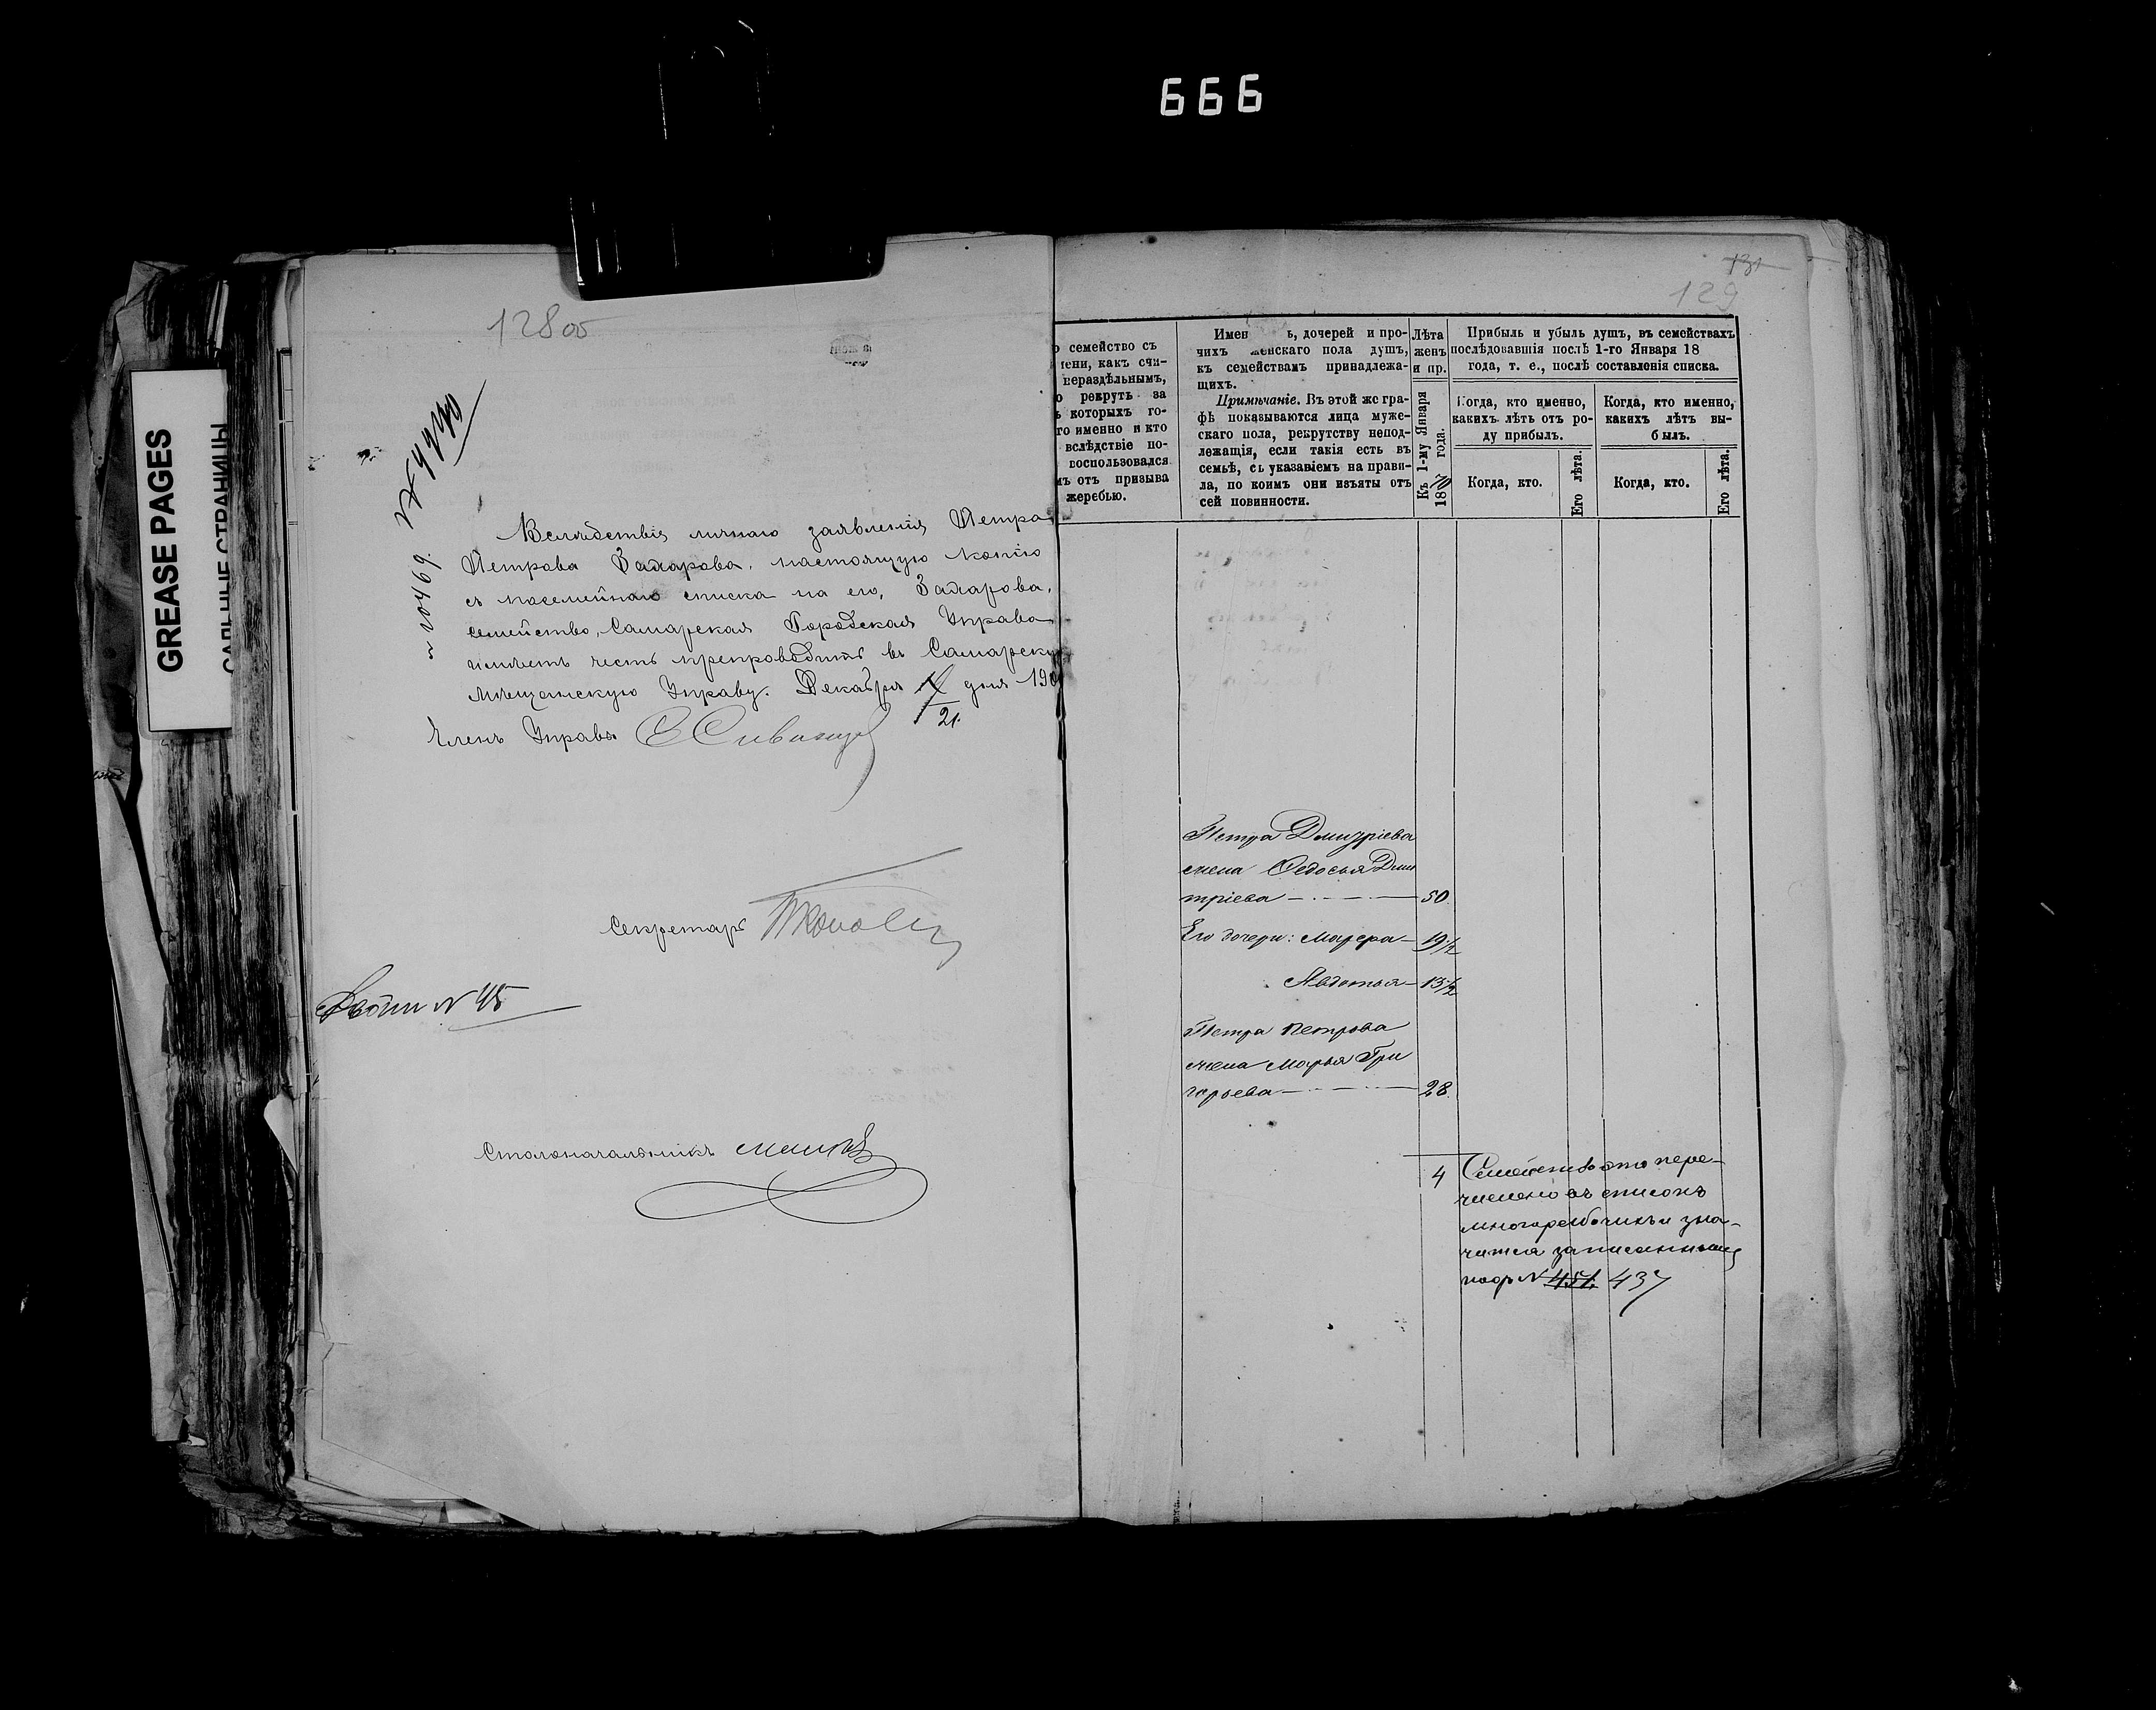 666
GREASE PAGES
САЛЬНЫЕ СТРАНИЦЫ
12800
№ 20469.
Вслѣдствіе личнаго заявленія Петра
Петрова Захарова, настоящую копію
съ посемейнаго списка на его, Захарова,
семейство, Самарская Городская Управа
имѣетъ честь препроводить въ Самарску
Мѣщанскую Управу. Декабря дня 190
21.
Членъ Управы
Секретарь
№ 45
Столоначальникъ
131
129
о семейство съ
мени, какъ счи-
нераздѣльнымъ,
о рекрутъ за
ъ которыхъ го-
го именно и кто
вслѣдствіе по-
воспользовался
мъ отъ призыва
жеребью.
Имен ь, дочерей и про-
чихъ женскаго пола душъ,
къ семействамъ принадлежа-
щихъ.
Примѣчаніе. Въ этой же гра-
фѣ показываются лица муже-
скаго пола, рекрутству непод-
лежащія, если такія есть въ
семьѣ, съ указаніемъ на прави-
ла, по коимъ они изъяты отъ
сей повинности.
Лѣта
женъ
и пр.
Къ 1-му Января
1870 года.
Прибыль и убыль душъ, въ семействахъ
послѣдовавшія послѣ 1-го Января 18
года, т. е., послѣ составленія списка.
Когда, кто именно,
какихъ лѣтъ отъ ро-
ду прибылъ.
Когда, кто именно,
какихъ лѣтъ вы-
былъ.
Когда, кто.
Его лѣта.
Когда, кто.
Его лѣта.
Петра Дмитріева
жена Ѳедосья Дми
тріева — 50
Его дочери: Марѳа — 19 1/2
Авдотья — 13 1/2
Петра Петрова
жена Марья Гри
горьева — 28.
4
Семейство это пере-
числено въ списокъ
и зна-
чится записаннымъ
подъ № 451. 437